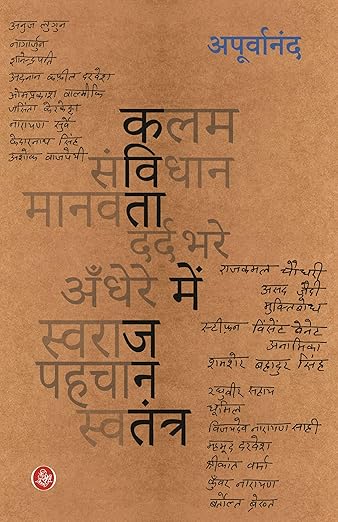 अपूर्वानंद
अनुज लुगुन
नागार्जुन
ज्ञानेन्द्रपति
अदनान कफ़ील दरवेश
ओमप्रकाश वाल्मीकि
जसिंता केरकेट्टा
नारायण सुर्वे
केदारनाथ सिंह
अशोक वाजपेयी
कलम
संविधान
मानवता
दर्द भरे
अँधेरे में
स्वराज
पहचान
स्वतंत्र
राजकमल चौधरी
असद ज़ैदी
मुक्तिबोध
स्टीफन विंसेंट बेनेट
अनामिका
शमशेर बहादुर सिंह
रघुवीर सहाय
धूमिल
विजयदेव नारायण साही
महमूद दरवेश
श्रीकांत वर्मा
कुँवर नारायण
बर्तोल्त ब्रेख्त